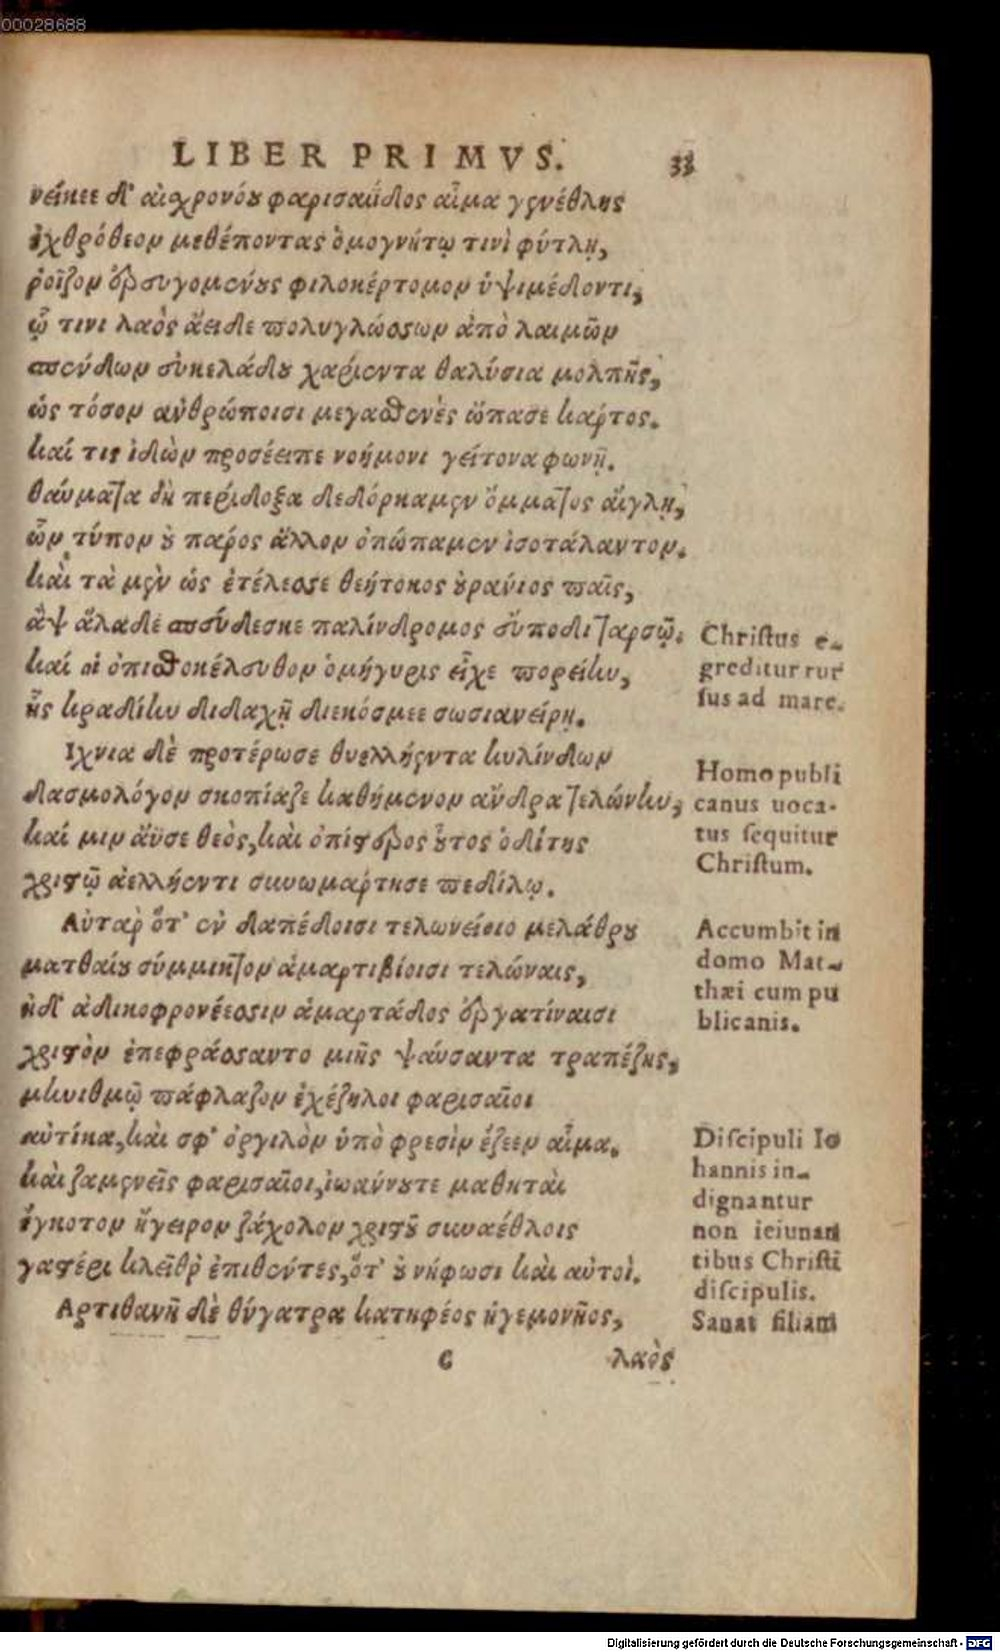 00028688
LIBER PRIMVS. 33
νείκεε δ' αἰσχρονόου φαρισαΐδος αἷμα γενέθλης
ἐχθρόθεον μεθέποντας ὁμογνήτῳ τινὶ φύτλῃ,
ῥοῖζον ἐρευγομένους φιλοκέρτομον ὑψιμέδοντι,
ᾧ τινι λαὸς ἄειδε πολυγλώσσων ἀπὸ λαιμῶν
σπένδων εὐκελάδου χαρίεντα θαλύσια μολπῆς,
ὡς τόσον ἀνθρώποισι μεγασθενὲς ὤπασε κάρτος.
καί τις ἰδὼν προσέειπε νοήμονι γείτονα φωνῇ.
θαύματα δὴ περίδοξα δεδόρκαμεν ὄμματος αἴγλῃ,
ὧν τύπον οὐ πάρος ἄλλον ὀπώπαμεν ἰσοτάλαντον.
καὶ τὰ μὲν ὡς ἐτέλεσσε θεήτοκος οὐράνιος παῖς,
ἂψ ἅλαδε σπεύδεσκε παλίνδρομος εὔποδι ταρσῷ.
καί οἱ ὀπισθοκέλευθον ὁμήγυρις εἶχε πορείην,
ἧς κραδίην διδαχῇ διεκόσμεε σωσιανείρῃ.
Ιχνια δὲ προτέρωσε θυελλήεντα κυλίνδων
δασμολόγον σκοπίαζε καθήμενον ἄνδρα τελώνην,
καί μιν ἄϋσε θεὸς, καὶ ὀπίστερος οὗτος ὁδίτης
χριστῷ ἀελλήεντι συνωμάρτησε πεδίλῳ.
Αὐτὰρ ὅτ' ἐν δαπέδοισι τελωνείοιο μελάθρου
ματθαίου σύμμικτον ἁμαρτιβίοισι τελώναις,
ἠδ' ἀδικοφρονέεσσιν ἁμαρτάδος ἐργατίναισι
χριστὸν ἐπεφράσσαντο μιῆς ψαύσαντα τραπέζης,
μηνιθμῷ πάφλαζον ἐχέζηλοι φαρισαῖοι
αὐτίκα, καὶ σφ' ὀργιλὸν ὑπὸ φρεσὶν ἔζεεν αἷμα.
καὶ ζαμενεῖς φαρισαῖοι, ἰωάννου τε μαθηταὶ
ἔγκοτον ἤγειρον ζάχολον χριστοῦ συναέθλοις
γαστέρι κλεῖθρ' ἐπιθέντες, ὅτ' οὐ νήφωσι καὶ αὐτοί.
Αρτιθανῆ δὲ θύγατρα κατηφέος ἡγεμονῆος,
C λαὸς
Christus e-
greditur rur
sus ad mare.
Homo publi
canus uoca-
tus sequitur
Christum.
Accumbit in
domo Mat-
thæi cum pu
blicanis.
Discipuli Io
hannis in-
dignantur
non ieiunan
tibus Christi
discipulis.
Sanat filiam
Digitalisierung gefördert durch die Deutsche Forschungsgemeinschaft - DFG